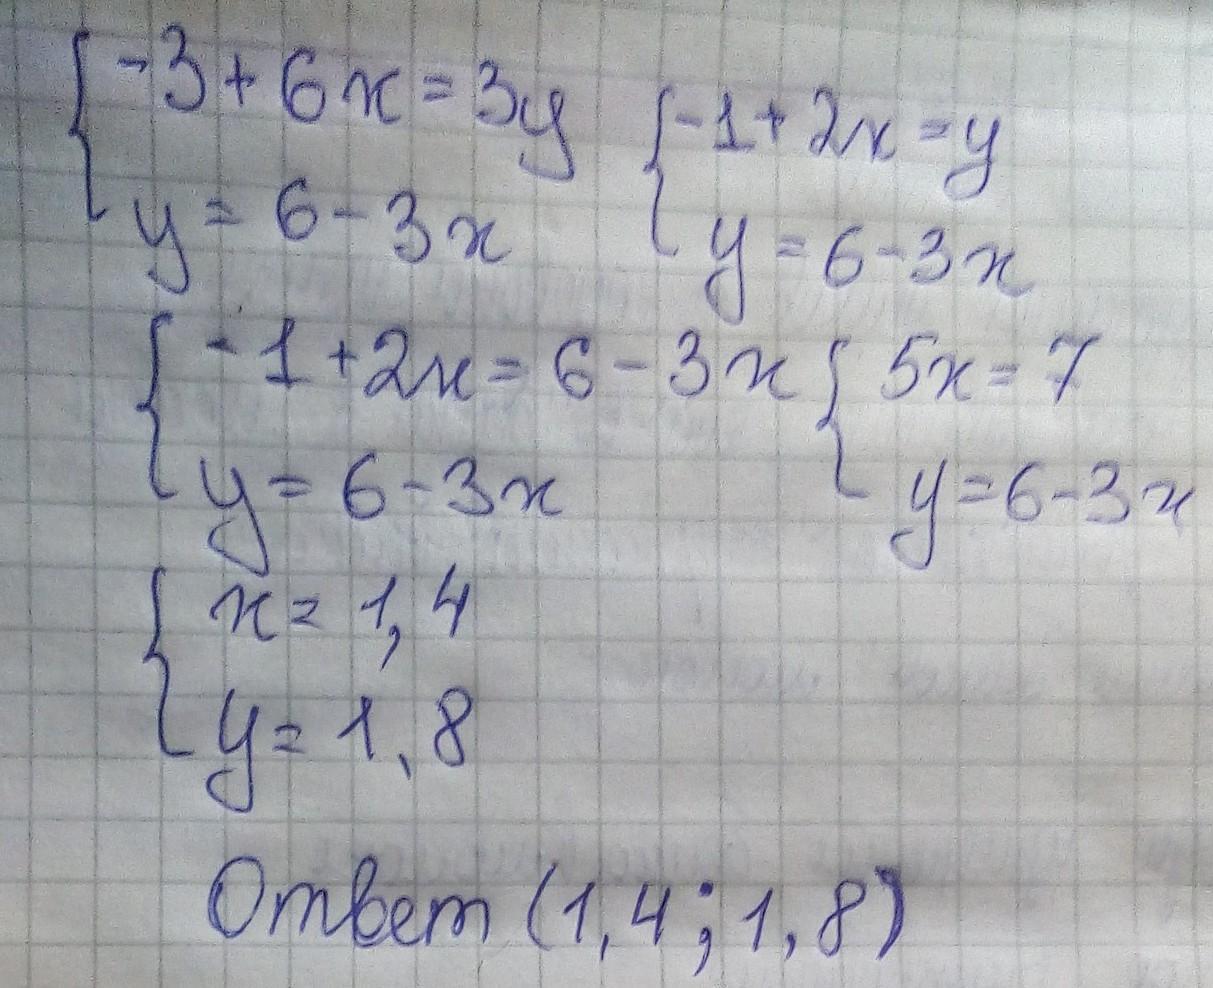 -3+6x=3y
y=6-3x
-1+2x=y
y=6-3x
-1+2x=6-3x
y=6-3x
5x=7
y=6-3x
x=1,4
y=1,8
Ответ (1,4;1,8)